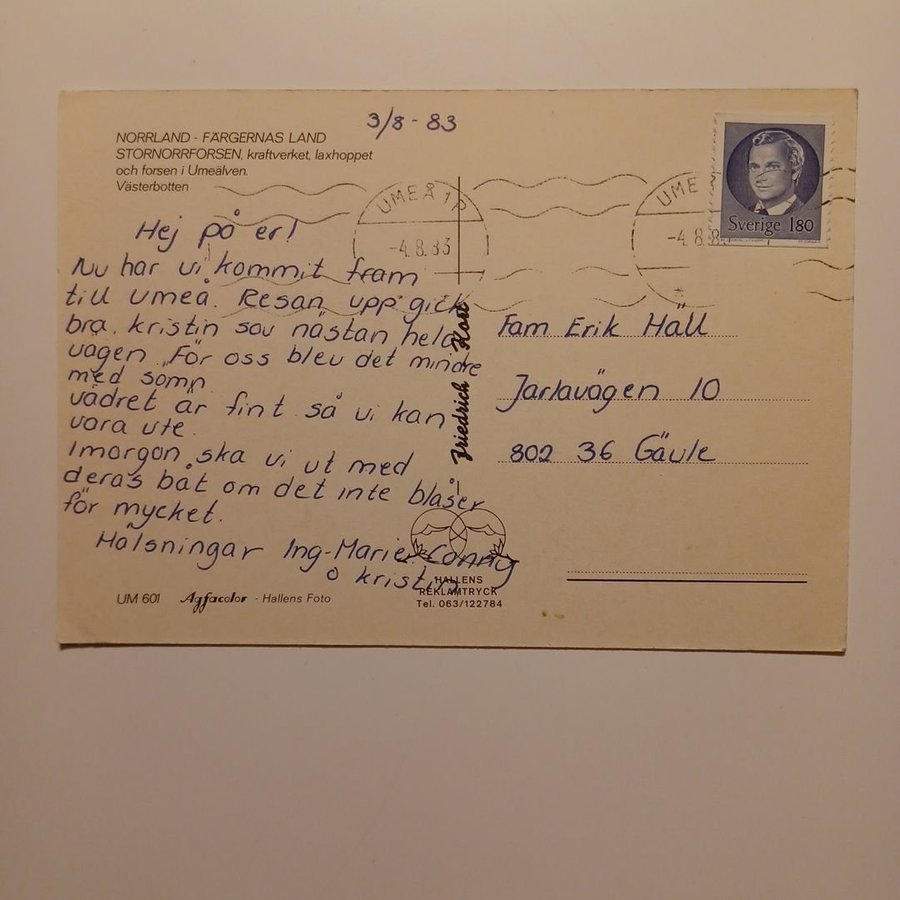 3/8 - 83
NORRLAND - FÄRGERNAS LAND
STORNORRFORSEN, kraftverket, laxhoppet
och forsen i Umeälven.
Västerbotten
UMEÅ 1 P
-4.8.83
UME
-4.8.83
Sverige 180
Hej på er!
Nu har vi kommit fram
till Umeå. Resan upp gick
bra. Kristin sov nästan hela
vägen. För oss blev det mindre
med sömn.
vädret är fint så vi kan
vara ute.
Imorgon ska vi ut med
deras båt om det inte blåser
för mycket.
Hälsningar Ing-Marie, Conny
o Kristin
Friedrich Kort
Fam Erik Häll
Jarlavägen 10
802 36 Gävle
UM 601 Agfacolor - Hallens Foto
HALLENS
REKLAMTRYCK
Tel. 063/122784